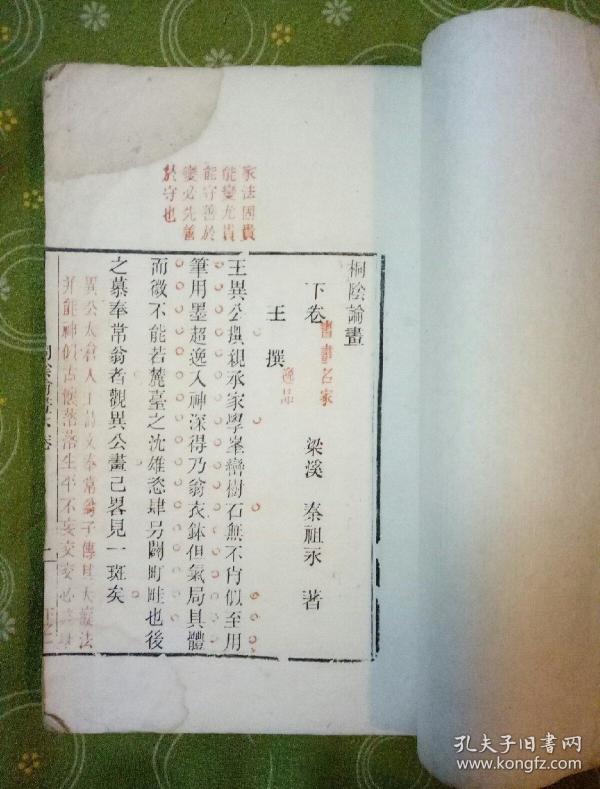 家法固貴
能變尤貴
能守善於
變必先善
於守也
桐陰論畫
下卷 書畫名家 梁溪 秦祖永 著
王撰 逸品
王異公撰親承家學峯巒樹石無不肖似至用
筆用墨超逸入神深得乃翁衣鉢但氣局具體
而微不能若麓臺之沈雄恣肆另闢町畦也後
之慕奉常翁者觀異公畫已畧見一斑矣
異公太倉人工詩文奉常翁子傳其大癡法
并能神似古倓落落生平不妄交交必
孔夫子旧书网
www.kongfz.com